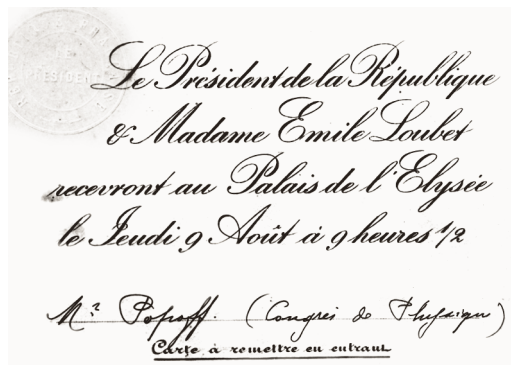 PRÉSIDENT
Le Président de la République
& Madame Emile Loubet
recevront au Palais de l'Elysée
le Jeudi 9 Août à 9 heures 1/2
Mr. Popoff. (Congrès de Physique)
Carte à remettre en entrant